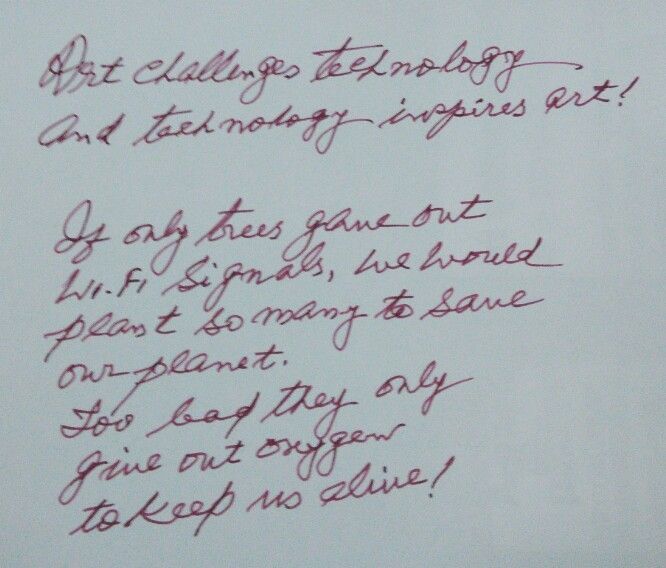 Art challenges technology
and technology inspires art!
If only trees gave out
Wi.Fi signals, we would
plant so many to save
our planet.
Too bad they only
give out oxygen
to keep us alive!